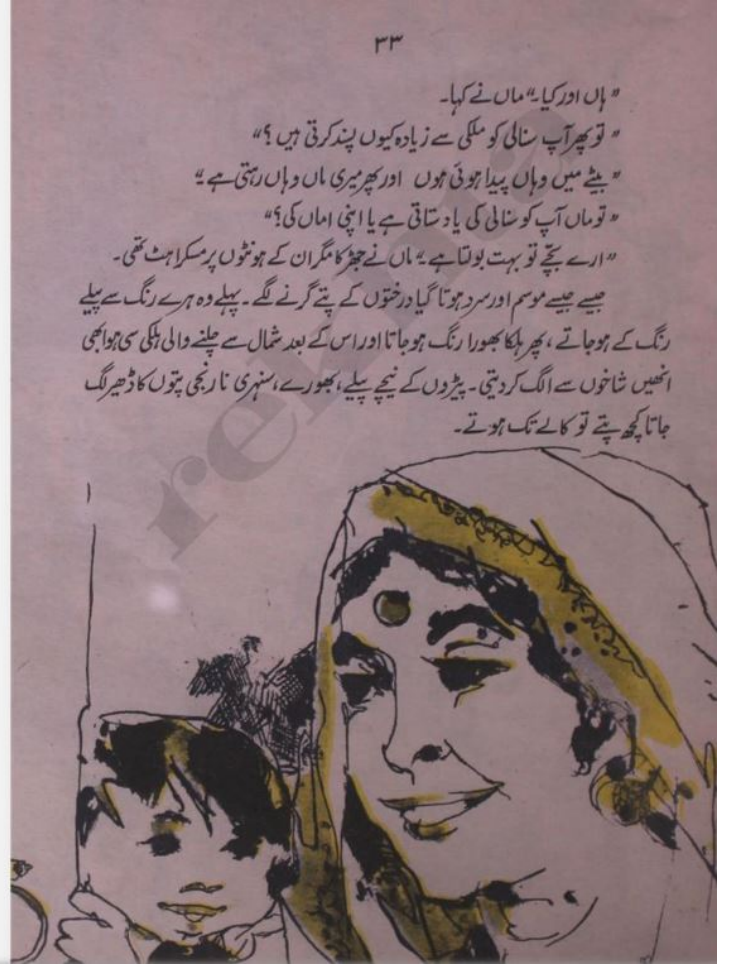 ۳۳
"ہاں اور کیا۔" ماں نے کہا۔
"تو پھر آپ سنالی کو ملکی سے زیادہ کیوں پسند کرتی ہیں؟"
"بیٹے میں وہاں پیدا ہوئی ہوں اور پھر میری ماں وہاں رہتی ہے۔"
"تو ماں آپ کو سنالی کی یاد ستاتی ہے یا اپنی اماں کی؟"
"ارے بچّے تو بہت بولتا ہے۔" ماں نے جھڑکا مگر ان کے ہونٹوں پر مسکراہٹ تھی۔
جیسے جیسے موسم اور سرد ہوتا گیا درختوں کے پتے گرنے لگے۔ پہلے وہ ہرے رنگ سے پیلے
رنگ کے ہو جاتے، پھر ہلکا بھورا رنگ ہو جاتا اور اس کے بعد شمال سے چلنے والی ہلکی سی ہوا بھی
انھیں شاخوں سے الگ کر دیتی۔ پیڑوں کے نیچے پیلے، بھورے، سنہری نارنجی پتوں کا ڈھیر لگ
جاتا کچھ پتے تو کالے تک ہوتے۔
rekhta